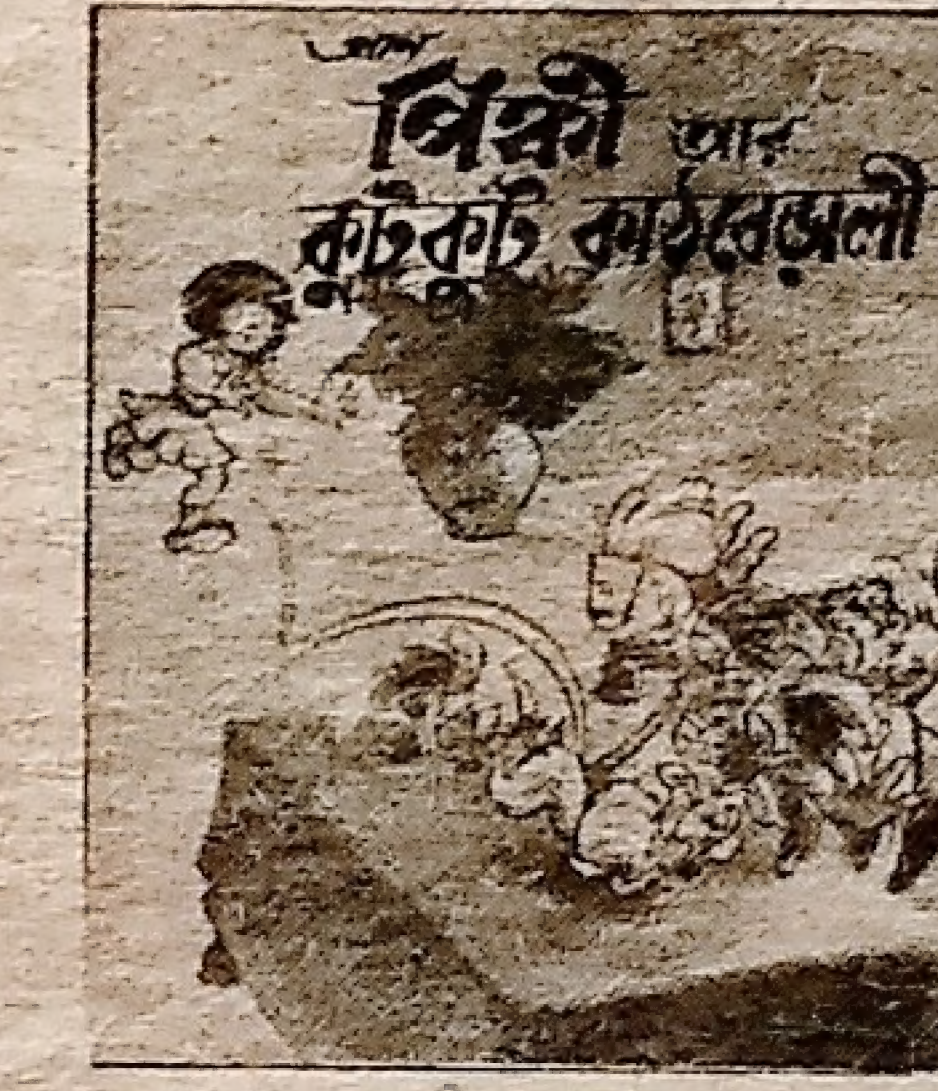 পিঙ্কী আর
কুটকুট কাঠবেড়ালী